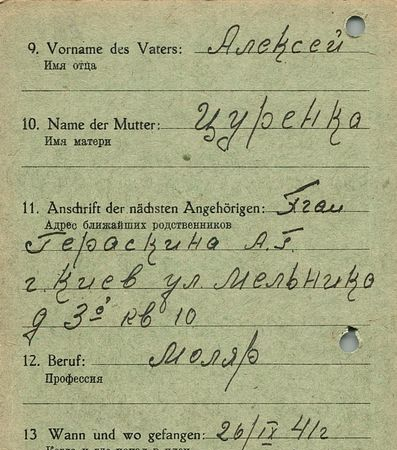 9. Vorname des Vaters: Алексей
Имя отца
10. Name der Mutter: Цуренка
Имя матери
11. Anschrift der nächsten Angehörigen: Frau
Адрес ближайших родственников
Гераскина А.Г.
г. Киев ул. Мельника
д 3а кв 10
12. Beruf: Моляр
Профессия
13 Wann und wo gefangen: 26/IX 41г